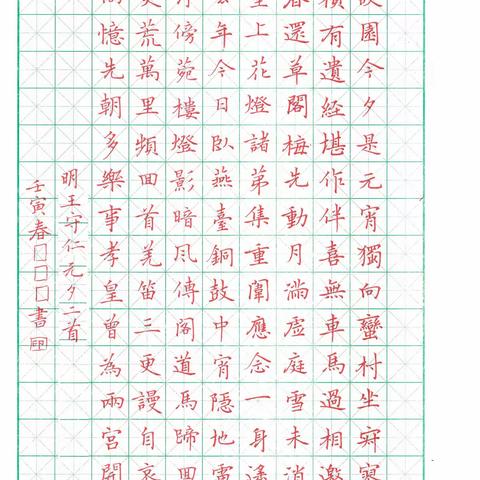 故園今夕是元宵獨向蠻村坐寂寥
賴有遺經堪作伴喜無車馬過相邀
春還草閣梅先動月滿虛庭雪未消
堂上花燈諸弟集重闈應念一身遙
去年今日臥燕臺銅鼓中宵隱地雷
傍菀樓燈影暗風傳閣道馬蹄回
炎荒萬里頻回首羌笛三更謾自哀
尚憶先朝多樂事孝皇曾為兩宮開
明王守仁元夕二首
壬寅春□□□書印